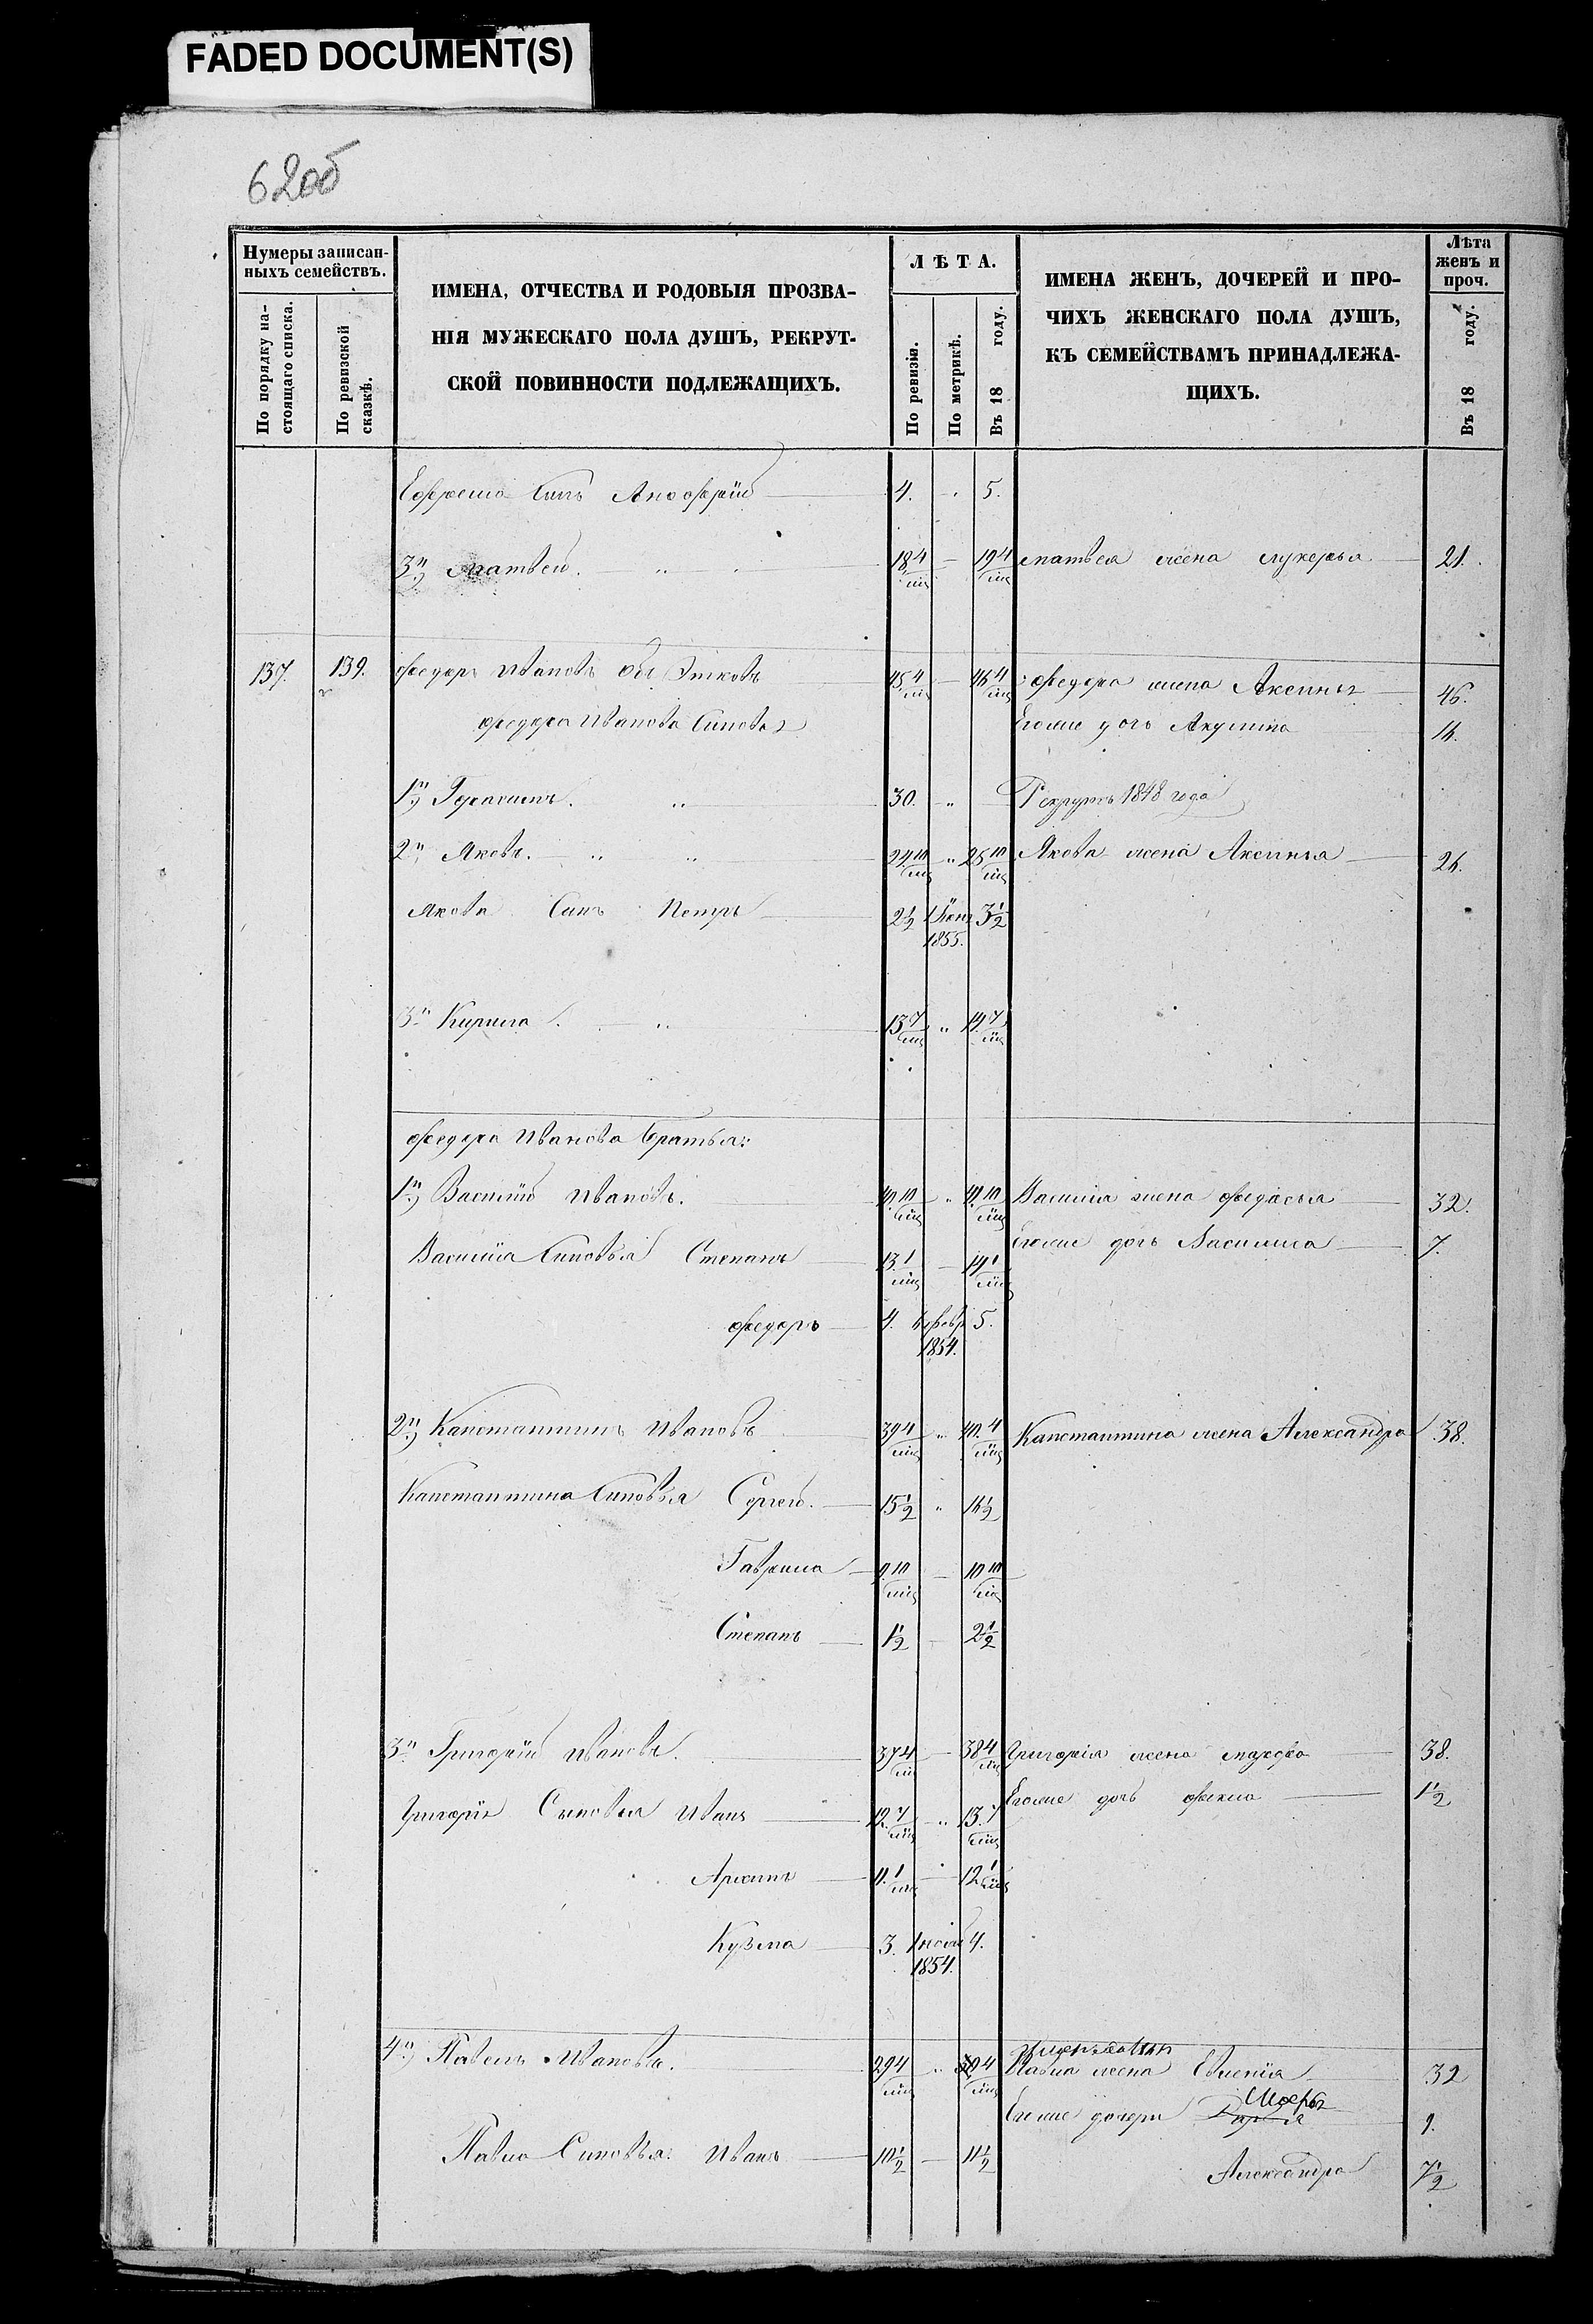 FADED DOCUMENT(S)
62об
Нумеры записан-
ныхъ семействъ.
По порядку на-
стоящаго списка.
По ревизской
сказкѣ.
ИМЕНА, ОТЧЕСТВА И РОДОВЫЯ ПРОЗВА-
НІЯ МУЖЕСКАГО ПОЛА ДУШЪ, РЕКРУТ-
СКОЙ ПОВИННОСТИ ПОДЛЕЖАЩИХЪ.
ЛѢТА.
По ревизіи.
По метрикѣ.
Въ 18 году.
ИМЕНА ЖЕНЪ, ДОЧЕРЕЙ И ПРО-
ЧИХЪ ЖЕНСКАГО ПОЛА ДУШЪ,
КЪ СЕМЕЙСТВАМЪ ПРИНАДЛЕЖА-
ЩИХЪ.
Лѣта
женъ и
проч.
Въ 18 году.
Ефрема Сынъ 4. " 5.
3й Матвей. " 18 4/мц — 19 4/мц Матвея жена Лукерья 21.
137. 139. Федоръ Ивановъ 45 4/мц — 46 4/мц Федора жена Аксинья 46.
Федора Иванова Сыновья Его же дочь Акулина 14.
1й Герасимъ. " 30. " — Рекрутъ 1848 года
2й Яковъ. " " 24 10/мц " 25 10/мц Якова жена Аксинья 26.
Якова Сынъ Петръ 2 1/2 1855. 3 1/2
3й Кирила. " 13 7/мц " 14 7/мц
Федора Иванова братья:
1й Василій Ивановъ. 10/мц " 10/мц Василія жена Федосья 32.
Василія Сыновья Степанъ 13 1/мц — 14 1/мц Его же дочь Василиса 7.
Федоръ 4. февр 1854. 5.
2й Канстантинъ Ивановъ 39 4/мц " 40. 4/мц Канстантина жена Александра 38.
Канстантина Сыновья Сергей. 15 1/2 " 16 1/2
Гаврила 9. 10/мц — 10 10/мц
Степанъ 1 1/2 — 2 1/2
3й Григорій Ивановъ. 37 4/мц — 38 4/мц Григорія жена 38.
Григорія Сыновья Иванъ 12. 7/мц " 13. 7/мц Его же дочь Фекла 1 1/2
Архипъ 11. 1/мц — 12 1/мц
Кузма 3. 1854. 4.
4й Павелъ Ивановъ. 29 4/мц " 30 4/мц Павла жена Евгенія 32
Его же дочери Дарья 9.
Павла Сыновья: Иванъ 10 1/2 — 11 1/2 Александра 7 1/2